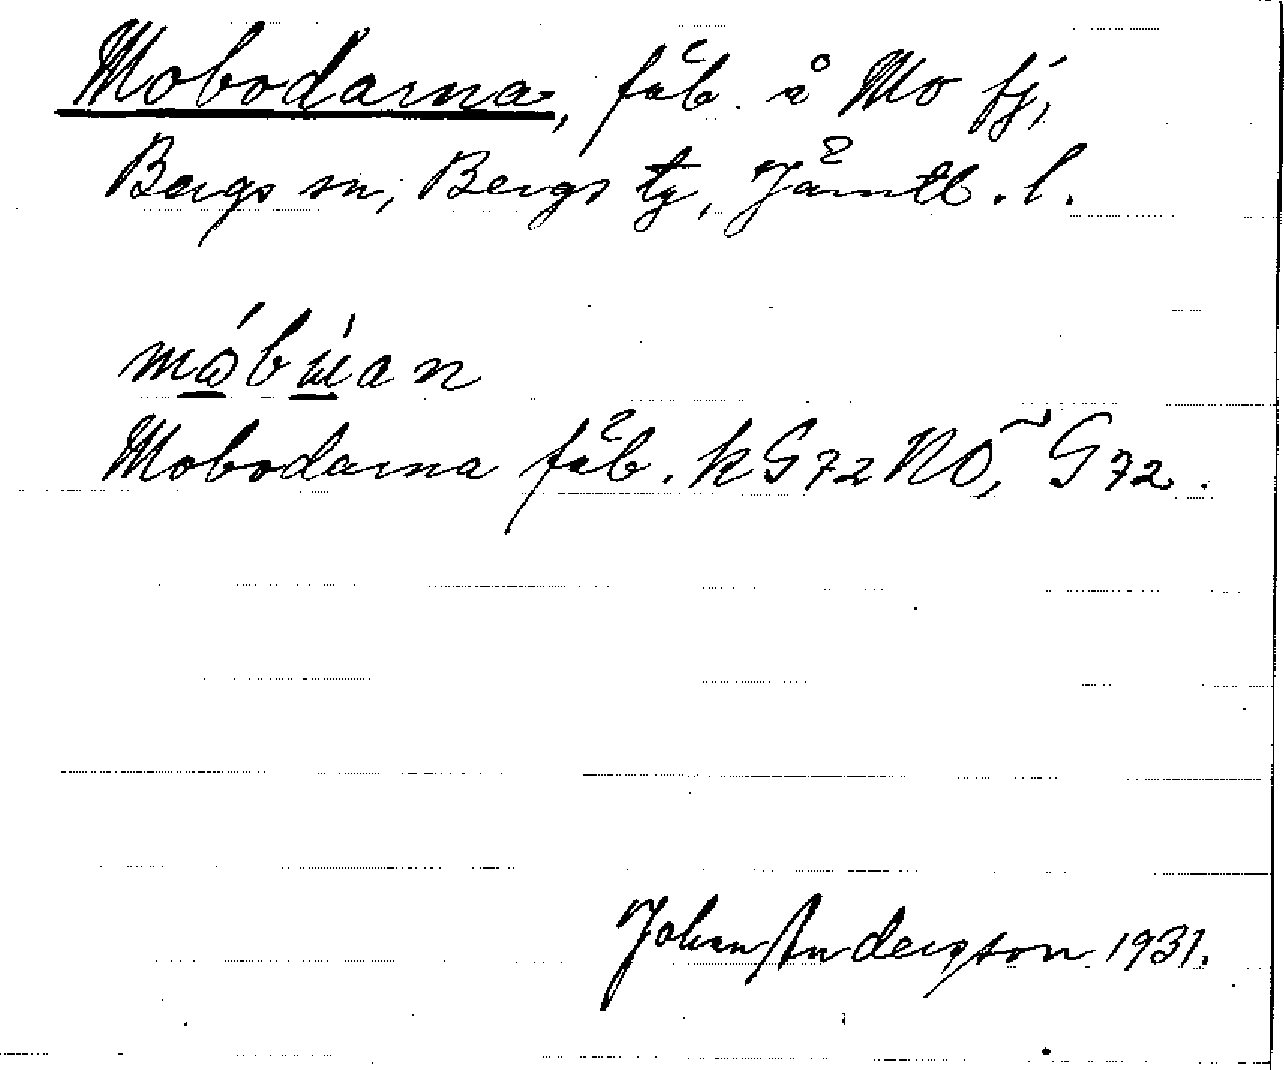 Mobodarna, fäb. å Mo fj,
Bergs sn, Bergs tg, Jämtl. l.
Mobodarna fäb. k G 72 NO, ~ G 72.
Johan Anderszon 1931.